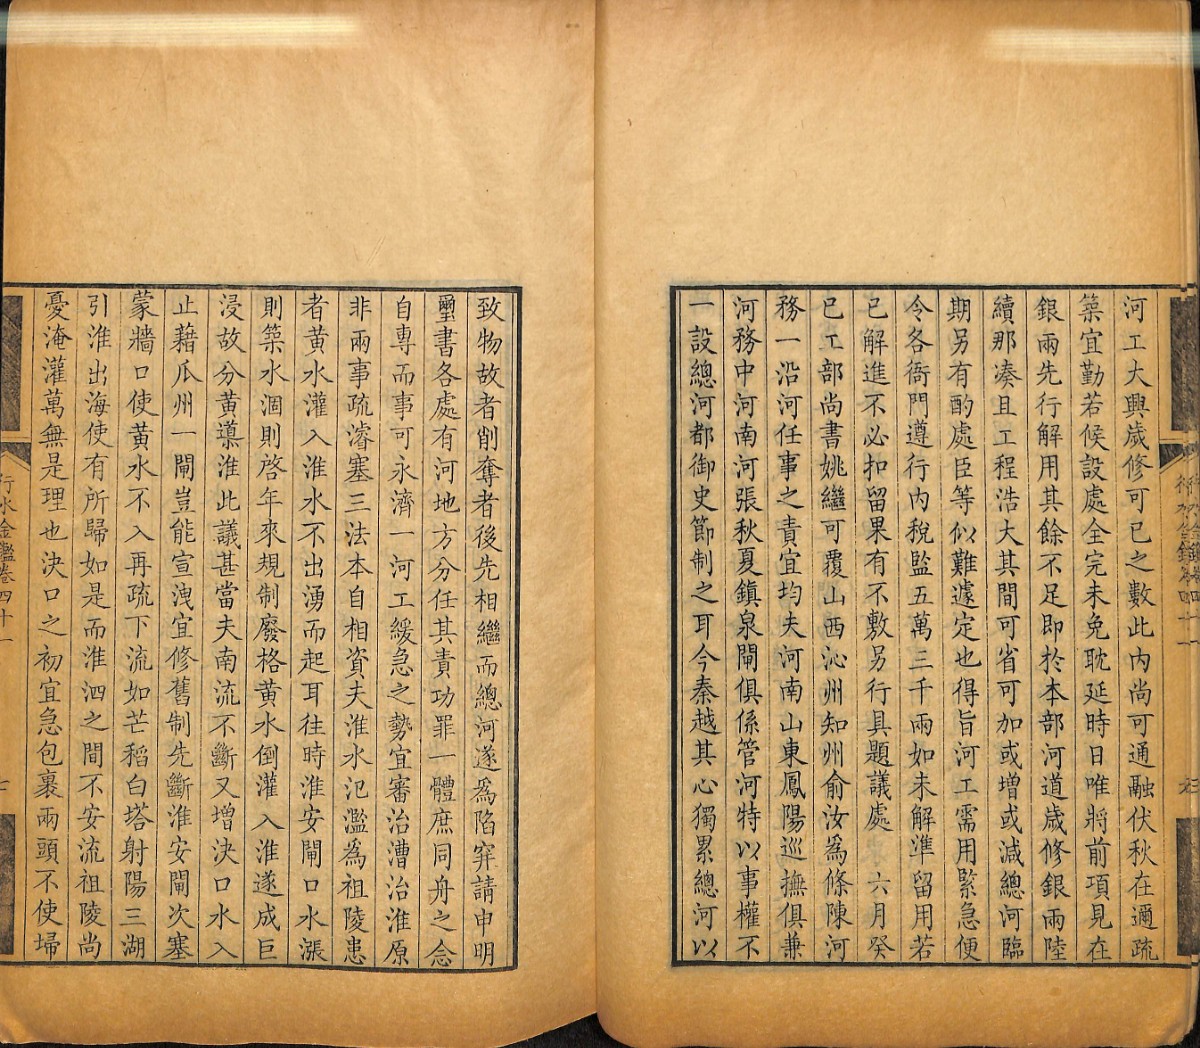 河工大興歲修可已之數此內尚可通融伏秋在邇疏
築宜勤若候設處全完未免耽延時日唯將前項見在
銀兩先行解用其餘不足即於本部河道歲修銀兩陸
續那湊且工程浩大其間可省可加或增或減總河臨
期另有酌處臣等似難遽定也得旨河工需用緊急便
令各衙門遵行內稅監五萬三千兩如未解準留用若
已解進不必扣留果有不敷另行具題議處 六月癸
巳工部尚書姚繼可覆山西沁州知州俞汝為條陳河
務一沿河任事之責宜均夫河南山東鳳陽巡撫俱兼
河務中河南河張秋夏鎮泉閘俱係管河特以事權不
一設總河都御史節制之耳今秦越其心獨累總河以
致物故者削奪者後先相繼而總河遂為陷穽請申明
璽書各處有河地方分任其責功罪一體庶同舟之念
自專而事可永濟一河工緩急之勢宜審治漕治淮原
非兩事疏濬塞三法本自相資夫淮水氾濫為祖陵患
者黃水灌入淮水不出湧而起耳往時淮安閘口水漲
則築水涸則啓年來規制廢格黃水倒灌入淮遂成巨
浸故分黃導淮此議甚當夫南流不斷又增決口水入
止藉瓜州一閘豈能宣洩宜修舊制先斷淮安閘次塞
蒙牆口使黃水不入再疏下流如芒稻白塔射陽三湖
引淮出海使有所歸如是而淮泗之間不安流祖陵尚
憂淹灌萬無是理也決口之初宜急包裹兩頭不使埽
行水金鑑卷四十一